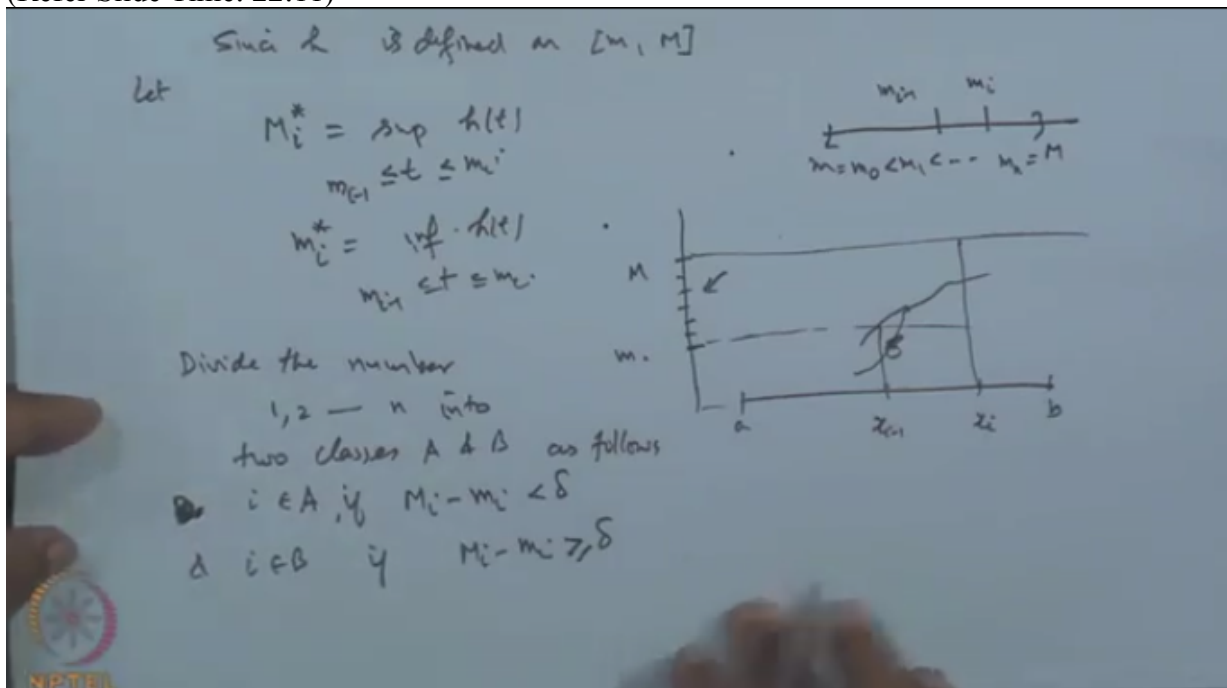 (Refer Slide Time: 22:11)
Since h is defined on [m, M]
Let
M_i^* = sup h(t)
m_{i-1} ≤ t ≤ m_i
m_i^* = inf h(t)
m_{i-1} ≤ t ≤ m_i
Divide the number
1, 2 — n into
two classes A & B as follows
i ∈ A, if M_i - m_i < δ
& i ∈ B if M_i - m_i ≥ δ
m_{i-1} m_i
m = m_0 < m_1 < -- m_n = M
M
m
a x_{i-1} x_i b
NPTEL